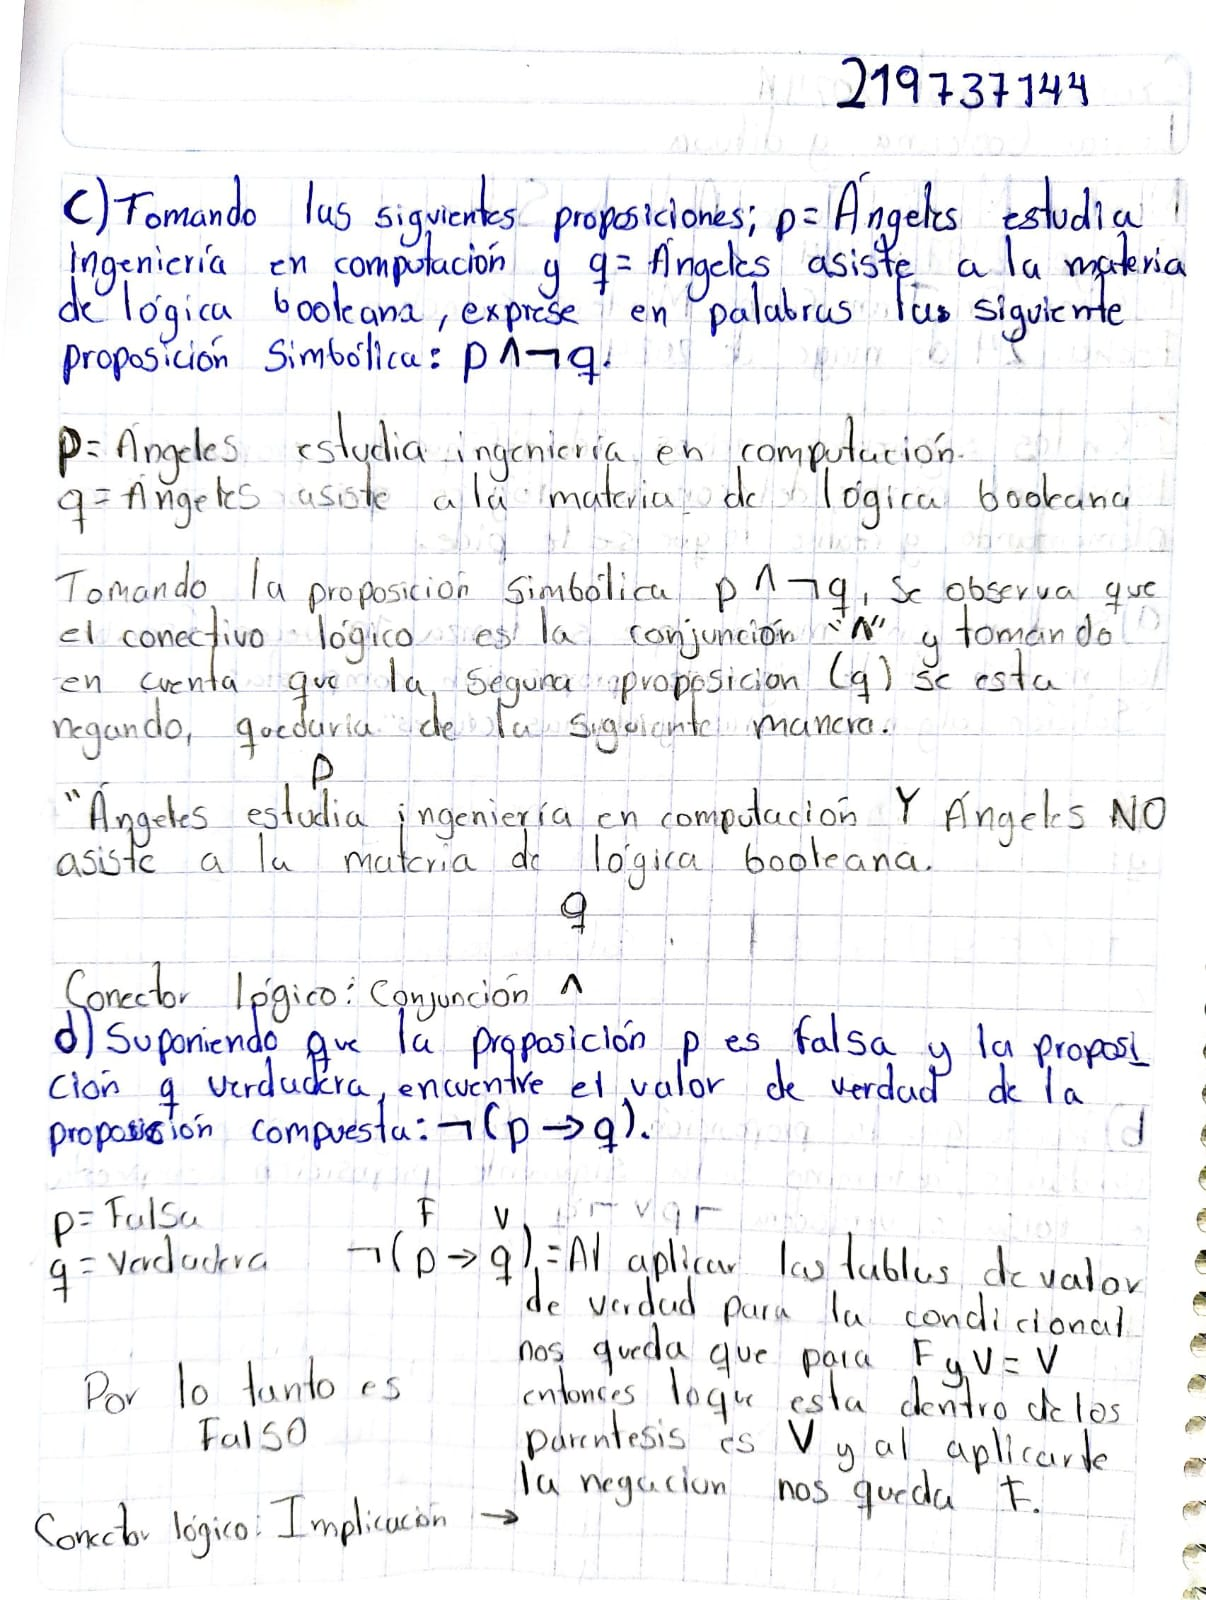 219737144
c) Tomando las siguientes proposiciones; p= Ángeles estudia
ingeniería en computación y q= Ángeles asiste a la materia
de lógica booleana, exprese en palabras las siguiente
proposición simbólica: p ∧ ¬ q.
p= Ángeles estudia ingeniería en computación.
q= Ángeles asiste a la materia de lógica booleana
Tomando la proposición simbólica p ∧ ¬q, se observa que
el conectivo lógico es la conjunción "∧" y tomando
en cuenta que la seguna proposicion (q) se esta
negando, quedaria de la siguiente manera.
p
"Ángeles estudia ingeniería en computación Y Ángeles NO
asiste a la materia de lógica booleana.
q
Conector lógico: Conjunción ∧
d) Suponiendo que la proposición p es falsa y la proposi
ción q verdadera, encuentre el valor de verdad de la
proposición compuesta: ¬(p → q).
p= Falsa F V
q= Verdadera ¬(p → q) = Al aplicar las tablas de valor
de verdad para la condicional
nos queda que para F y V = V
Por lo tanto es entonces loque esta dentro de los
Falso parentesis es V y al aplicarle
la negacion nos queda F.
Conector lógico: Implicación →